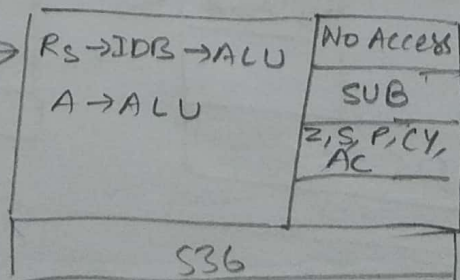 → Rs→IDB→ALU
A→ALU
No Access
SUB
Z, S, P, CY,
AC
S36